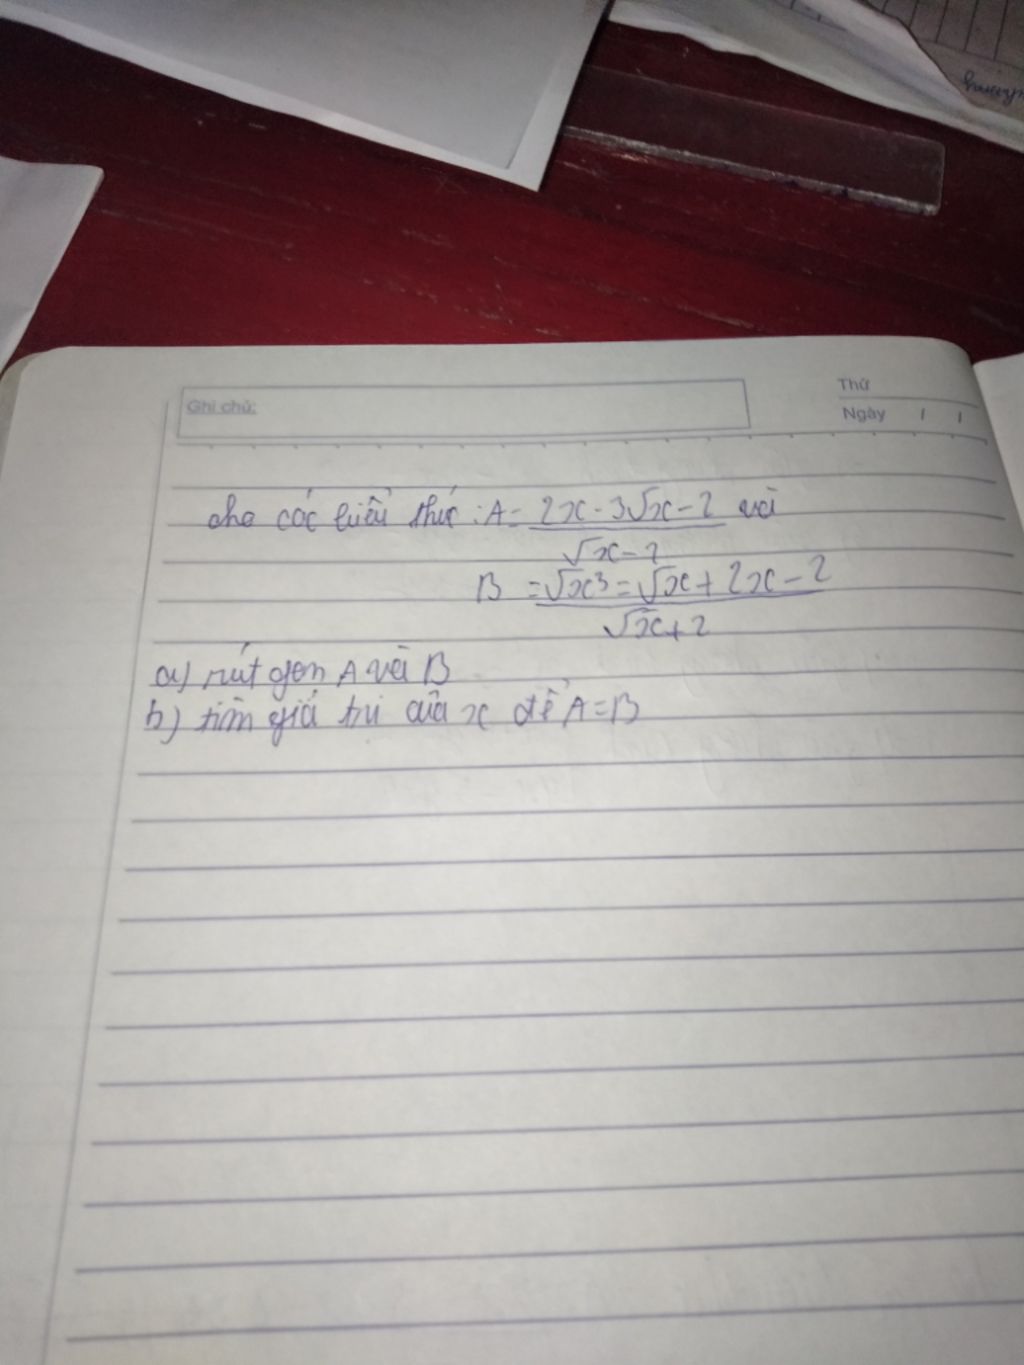 Ghi chú:
Thứ
Ngày / /
cho các biểu thức : A = 2x - 3√x - 2 và
√x - 2
B = √x³ = √x + 2x - 2
√x + 2
a) rút gọn A và B
b) tìm giá trị của x để A = B